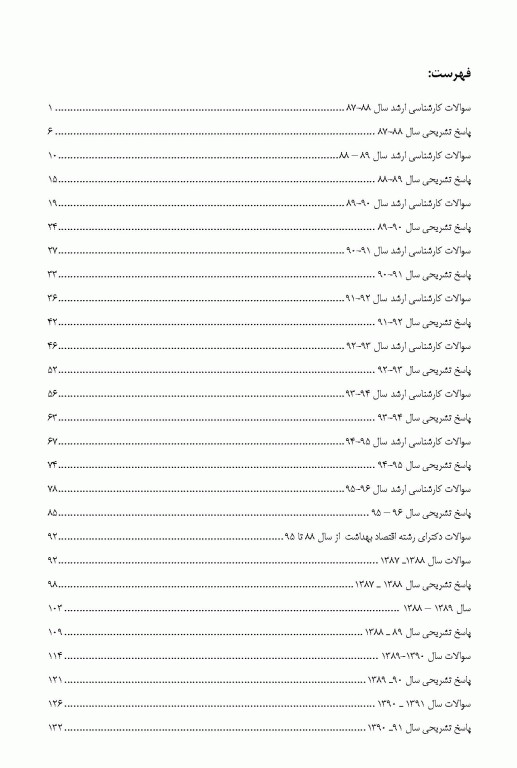 فهرست:
سوالات کارشناسی ارشد سال ۸۸-۸۷ ........ ۱
پاسخ تشریحی سال ۸۸-۸۷ ........ ۶
سوالات کارشناسی ارشد سال ۸۹ – ۸۸ ........ ۱۰
پاسخ تشریحی سال ۸۹-۸۸ ........ ۱۵
سوالات کارشناسی ارشد سال ۹۰-۸۹ ........ ۱۹
پاسخ تشریحی سال ۹۰-۸۹ ........ ۲۴
سوالات کارشناسی ارشد سال ۹۱-۹۰ ........ ۲۷
پاسخ تشریحی سال ۹۱-۹۰ ........ ۳۳
سوالات کارشناسی ارشد سال ۹۲-۹۱ ........ ۳۶
پاسخ تشریحی سال ۹۲-۹۱ ........ ۴۲
سوالات کارشناسی ارشد سال ۹۳-۹۲ ........ ۴۶
پاسخ تشریحی سال ۹۳-۹۲ ........ ۵۲
سوالات کارشناسی ارشد سال ۹۴-۹۳ ........ ۵۶
پاسخ تشریحی سال ۹۴-۹۳ ........ ۶۳
سوالات کارشناسی ارشد سال ۹۵-۹۴ ........ ۶۷
پاسخ تشریحی سال ۹۵-۹۴ ........ ۷۴
سوالات کارشناسی ارشد سال ۹۶-۹۵ ........ ۷۸
پاسخ تشریحی سال ۹۶ – ۹۵ ........ ۸۵
سوالات دکترای رشته اقتصاد بهداشت از سال ۸۸ تا ۹۵ ........ ۹۲
سوالات سال ۱۳۸۸ـ ۱۳۸۷ ........ ۹۲
پاسخ تشریحی سال ۱۳۸۸ ـ ۱۳۸۷ ........ ۹۸
سال ۱۳۸۹ – ۱۳۸۸ ........ ۱۰۳
پاسخ تشریحی سال ۸۹ ـ ۱۳۸۸ ........ ۱۰۹
سوالات سال ۱۳۹۰-۱۳۸۹ ........ ۱۱۴
پاسخ تشریحی سال ۹۰ـ ۱۳۸۹ ........ ۱۲۱
سوالات سال ۱۳۹۱ ـ ۱۳۹۰ ........ ۱۲۶
پاسخ تشریحی سال ۹۱ـ ۱۳۹۰ ........ ۱۳۲